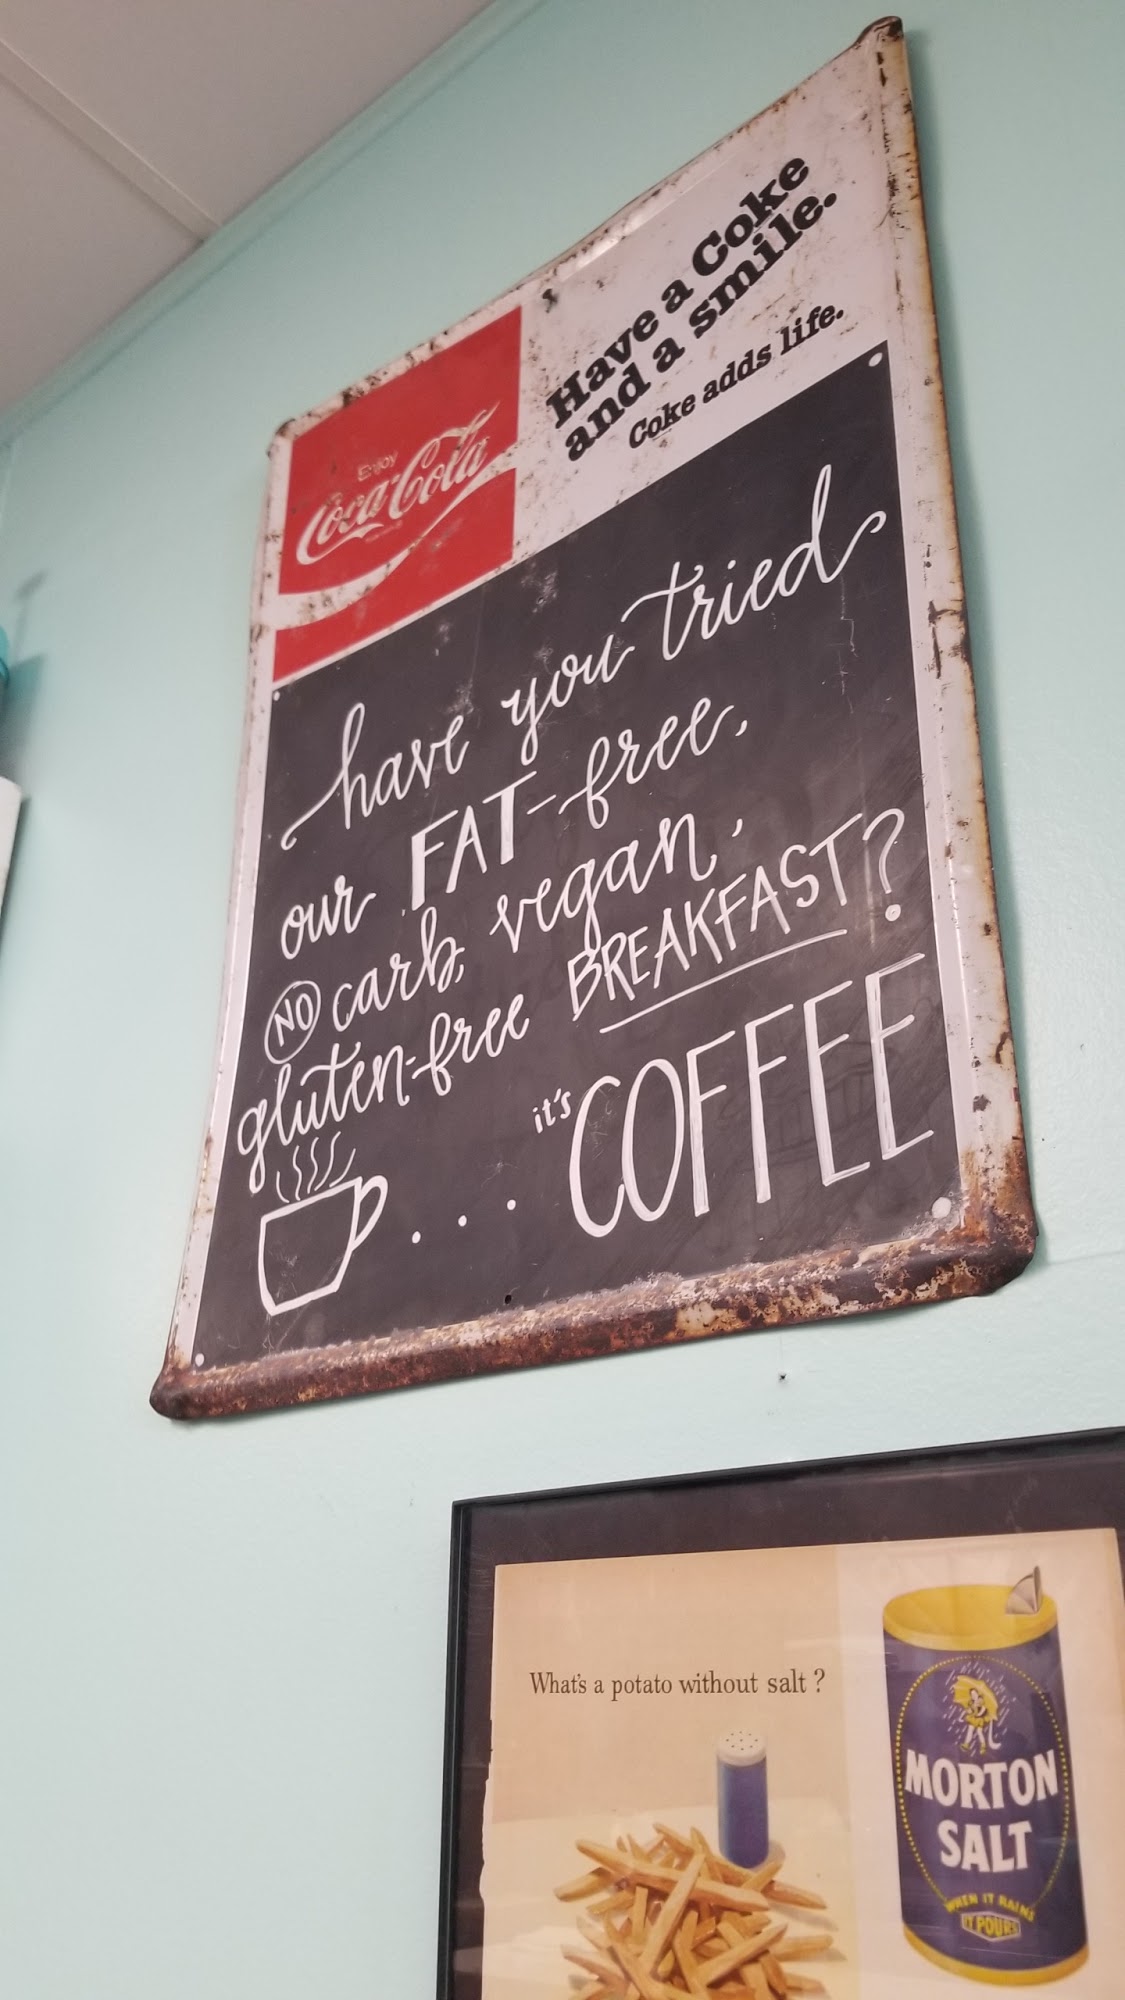 Enjoy
Coca-Cola
Have a Coke
and a smile.
Coke adds life.
have you tried
our FAT-free,
NO carb, vegan,
gluten-free BREAKFAST?
... it's COFFEE
What's a potato without salt?
MORTON
SALT
WHEN IT RAINS
IT POURS